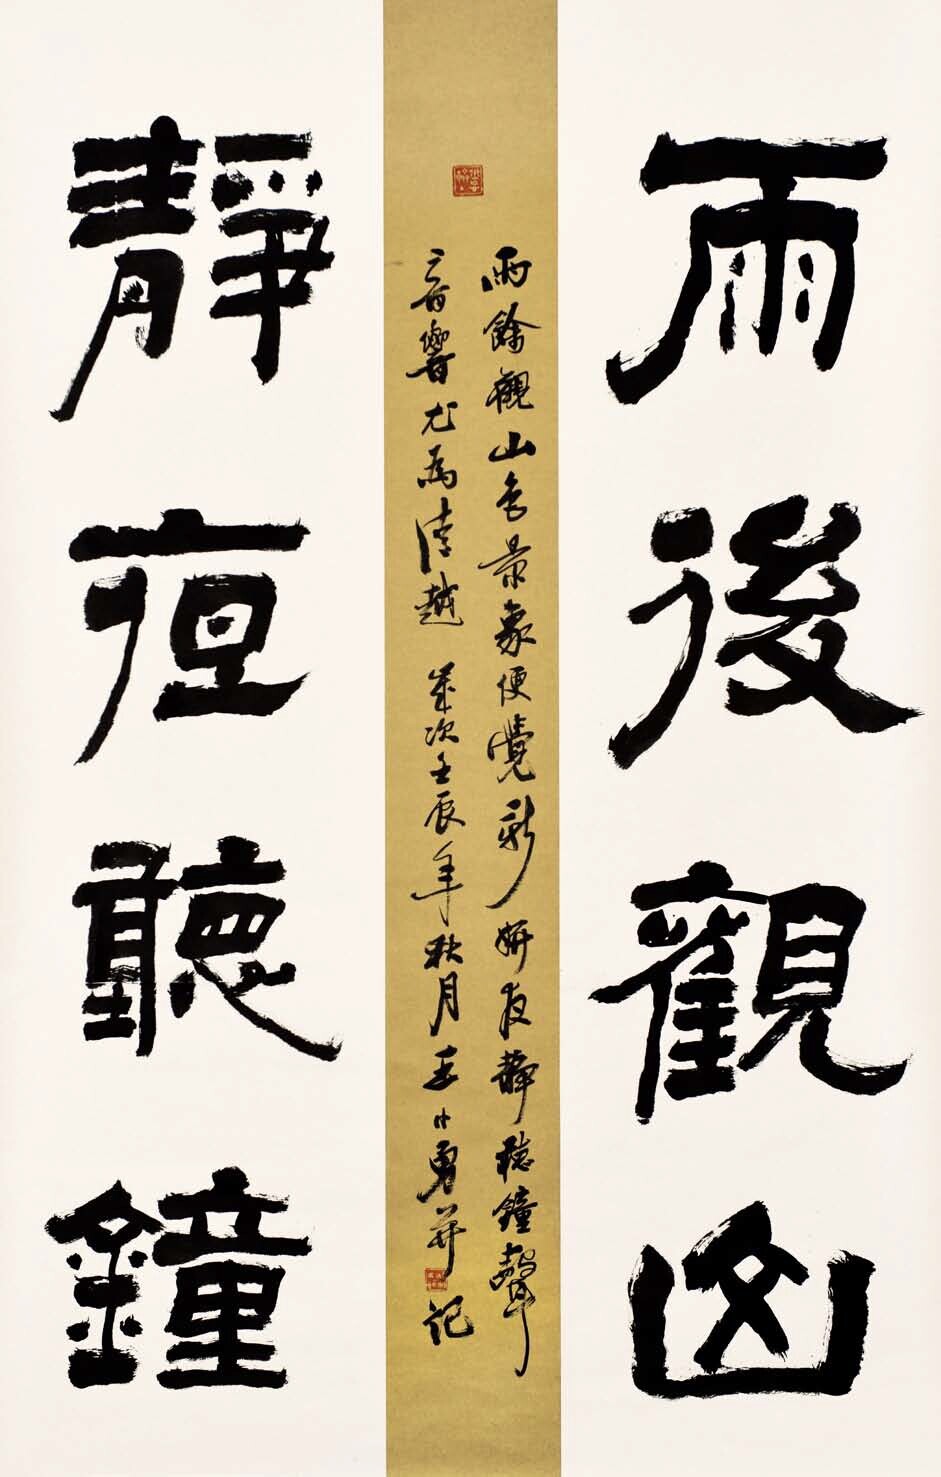 雨後觀山
雨餘觀山色景象便覺新妍夜靜聽鐘聲
音響尤為清越 歲次壬辰年秋月勇并記
靜亱聽鐘